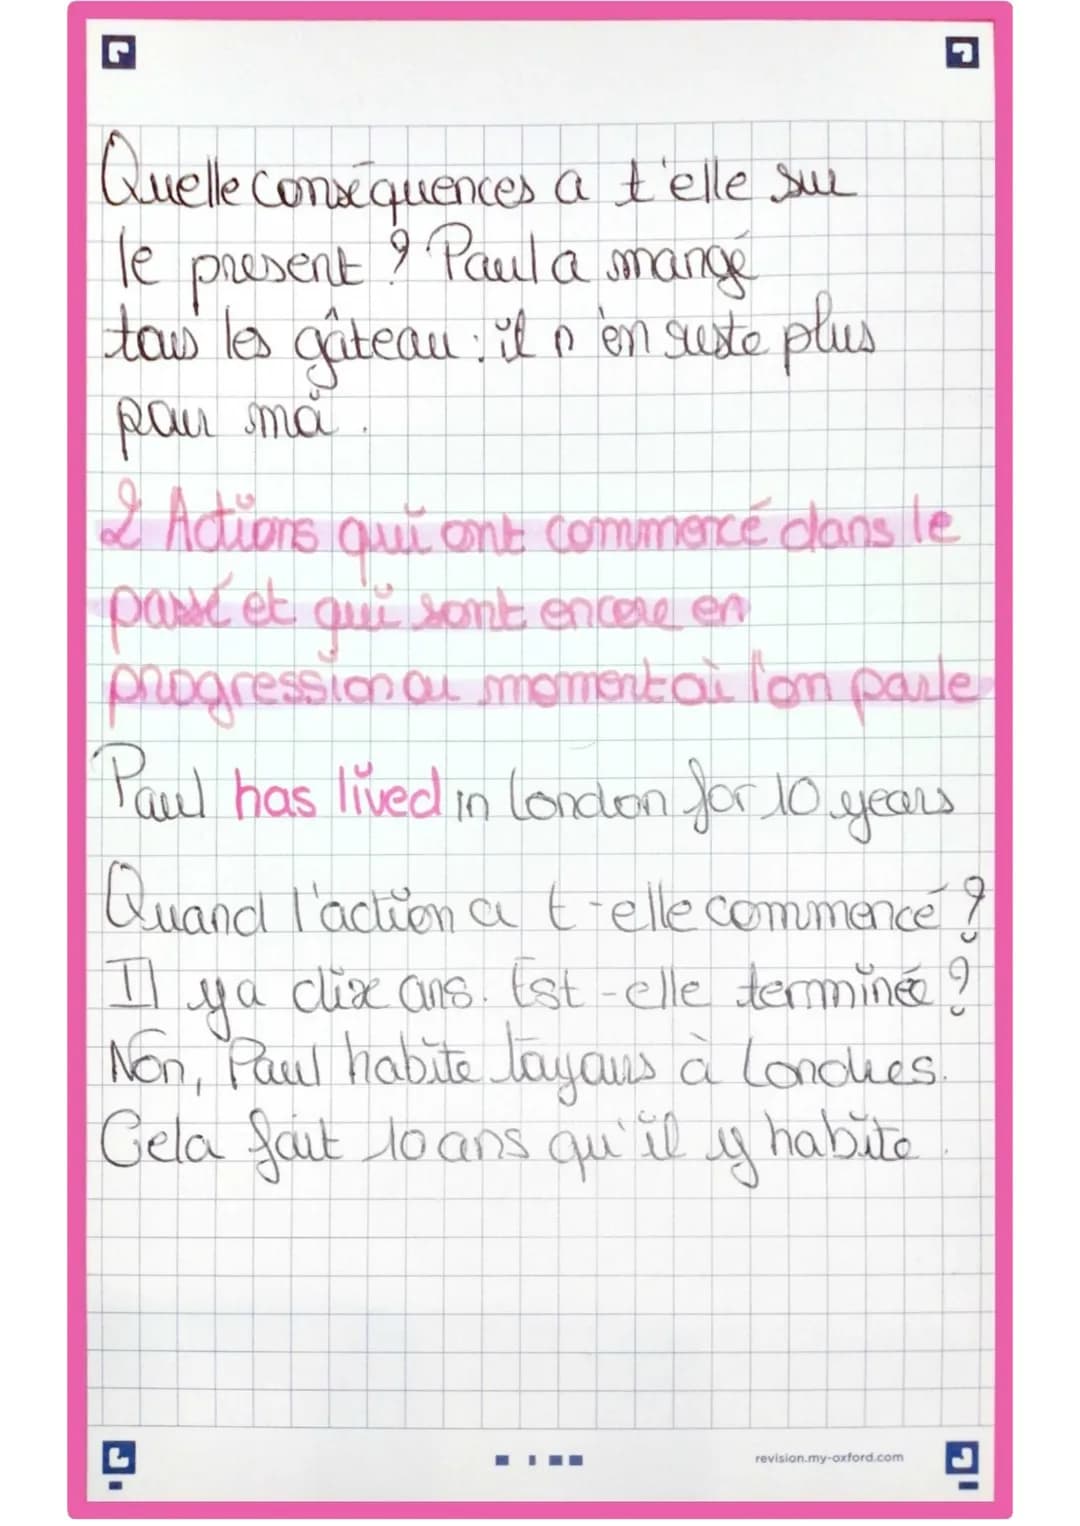 Quelle conséquences a t'elle sur
le present ? Paul a mangé
tous les gâteau : il n'en reste plus
pour moi.
2 Actions qui ont commencé dans le
passé et qui sont encore en
progression au moment où l'on parle
Paul has lived in London for 10 years
Quand l'action a t-elle commencé ?
Il ya dix ans. Est-elle terminée ?
Non, Paul habite toyours à Londres.
Cela fait 10 ans qu'il y habite.
revision.my-oxford.com